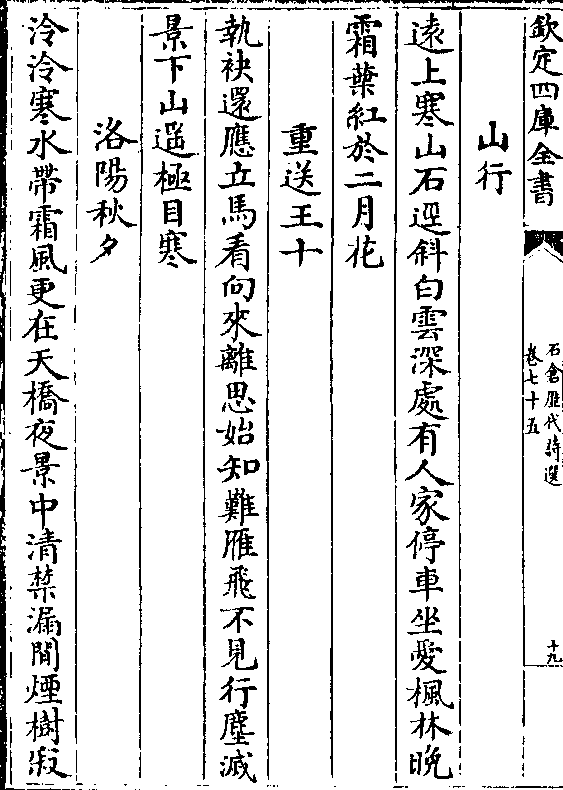 欽定四庫全書
石倉歷代詩選
卷七十五
十九
山行
遠上寒山石逕斜白雲深處有人家停車坐愛楓林晚
霜葉紅於二月花
重送王十
執袂還應立馬看向來離思始知難雁飛不見行塵滅
景下山遥極目寒
洛陽秋夕
泠泠寒水帶霜風更在天橋夜景中清禁漏閒煙樹寂